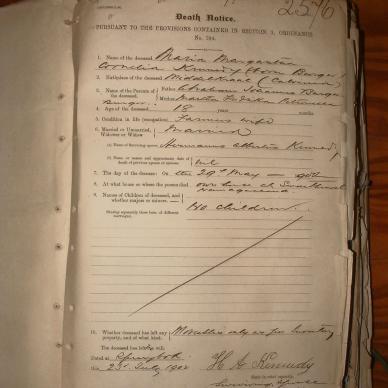 2576
Death Notice.
PURSUANT TO THE PROVISIONS CONTAINED IN SECTION 3, ORDINANCE
No. 104.
1. Name of the deceased Maria Margaretha
Cornelia Kennedy (born Burger)
2. Birthplace of the deceased Middelkraal (Calvinia)
3. Name of the Parents of the deceased. Father Abraham Johannes Burger
Mother Martha
Burger.
4. Age of the deceased 18 years months
5. Condition in life (occupation) Farmers wife
6. Married or Unmarried, Widower or Widow Married
(a) Name of Surviving spouse Hermanus Albertus Kennedy
(b) Name or names and approximate date of death of previous spouse or spouses Nil
7. The day of the decease On the 29th May
8. At what house or where the person died own house at
9. Names of Children of deceased, and whether majors or minors.
No children.
Stating separately those born of different marriages.
10. Whether deceased has left any property, and of what kind. Movables only as per Inventory
The deceased has left
Dated at Springbok
the 23 July 1902
H A Kennedy
State in what capacity.
Surviving Spouse